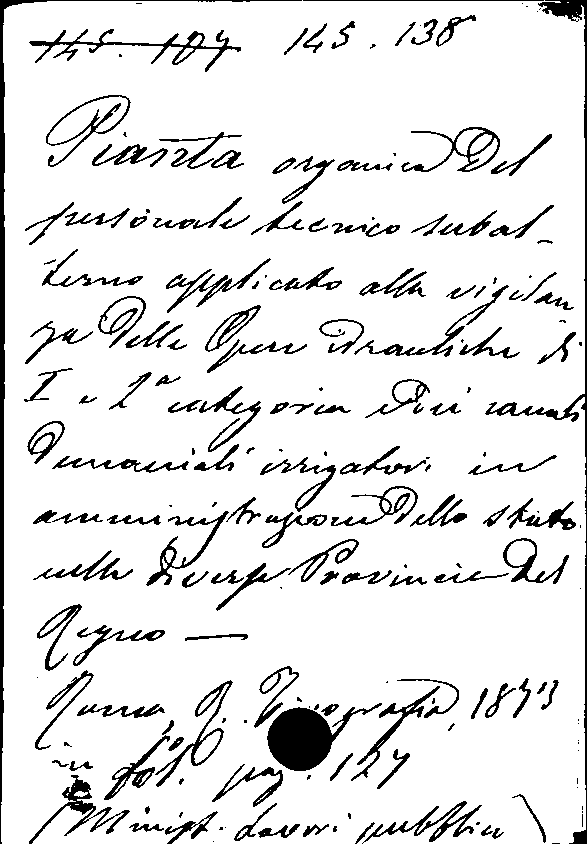 145. 107 145. 138
Pianta organica del
personale tecnico subal-
terno applicato alla vigilan
za delle Opere idrauliche di
I e 2ª categoria e dei canali
demaniali irrigatori in
amministrazione dello stato
nelle diverse Provincie del
Regno —
Roma, R. Tipografia, 1873
in fol. pag. 127
(Minist. Lavori pubblici)